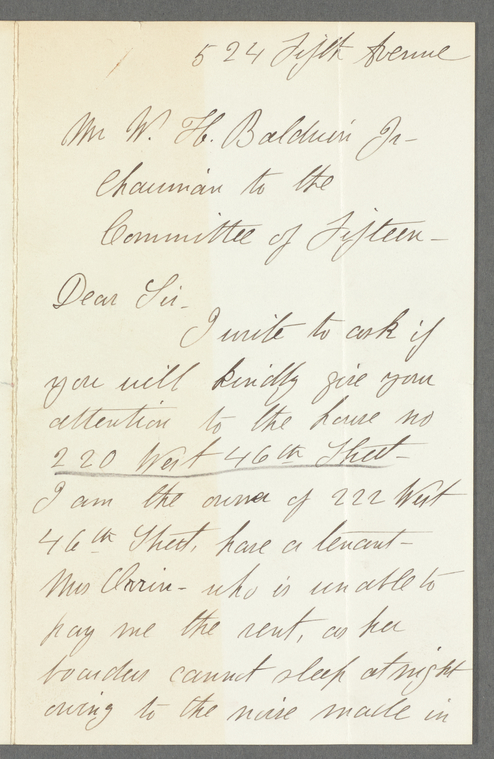 524 Fifth Avenue
Mr W. H. Baldwin Jr-
Chairman to the
Committee of Fifteen-
Dear Sir-
I write to ask if
you will kindly give your
attention to the house no
220 West 46th Street-
I am the owner of 222 West
46th Street, have a tenant-
Mrs Orrin- who is unable to
pay me the rent, as her
boarders cannot sleep at night
owing to the noise made in